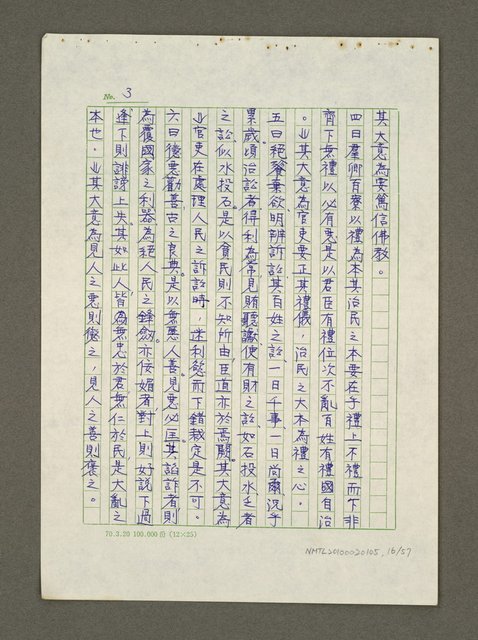 No. 3
其大意為要篤信佛教。
四曰羣卿百寮以禮為本其治民之本要在乎禮上不禮而下非
齊下無禮以必有罪是以君臣有禮位次不亂百姓有禮國自治
。此其大意為官吏要正其禮儀，治民之大本為禮之心。
五曰絕餮棄欲明辨訴訟其百姓之訟、一日千事、一日尚爾況乎
累歲頃治訟者得利為常見賄聽讞便有財之訟、如石投水乏者
之訟、似水投石。是以貧民則不知所由臣道亦於焉闕。其大意為
此官吏在處理人民之訴訟時，迷利慾而下錯裁定是不可。
六曰懲惡勸善古之良典是以無匿人善見惡必匡其諂詐者則
為覆國家之利器為絕人民之鋒劍亦佞媚者對上則好說下過
逢下則誹謗上失。其如此人皆為無忠於君無仁於民是大亂之
本也。此其大意為見人之惡則懲之，見人之善則褒之。
70.3.20 100.000份 (12×25)
NMTL20100020105, 16/57